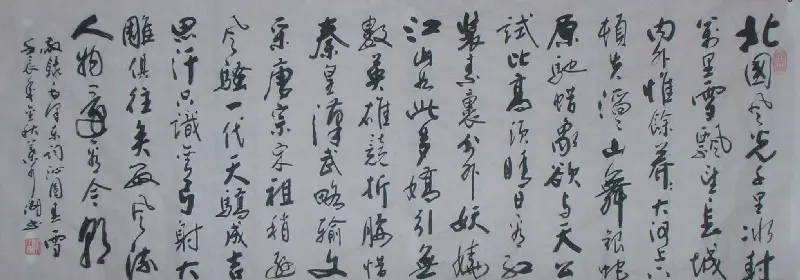 北國风光千里冰封
萬里雪飘望长城
内外惟餘莽莽大河上下
頓失滔滔山舞銀蛇
原驰蜡象欲与天公
試比高須晴日看红
装素裹分外妖嬈
江山如此多嬌引無
數英雄競折腰惜
秦皇漢武略輸文
采唐宗宋祖稍遜
风騷一代天驕成吉
思汗只識彎弓射大
雕俱往矣数风流
人物還看今朝
敬錄毛泽东词沁园春雪
壬辰年金秋